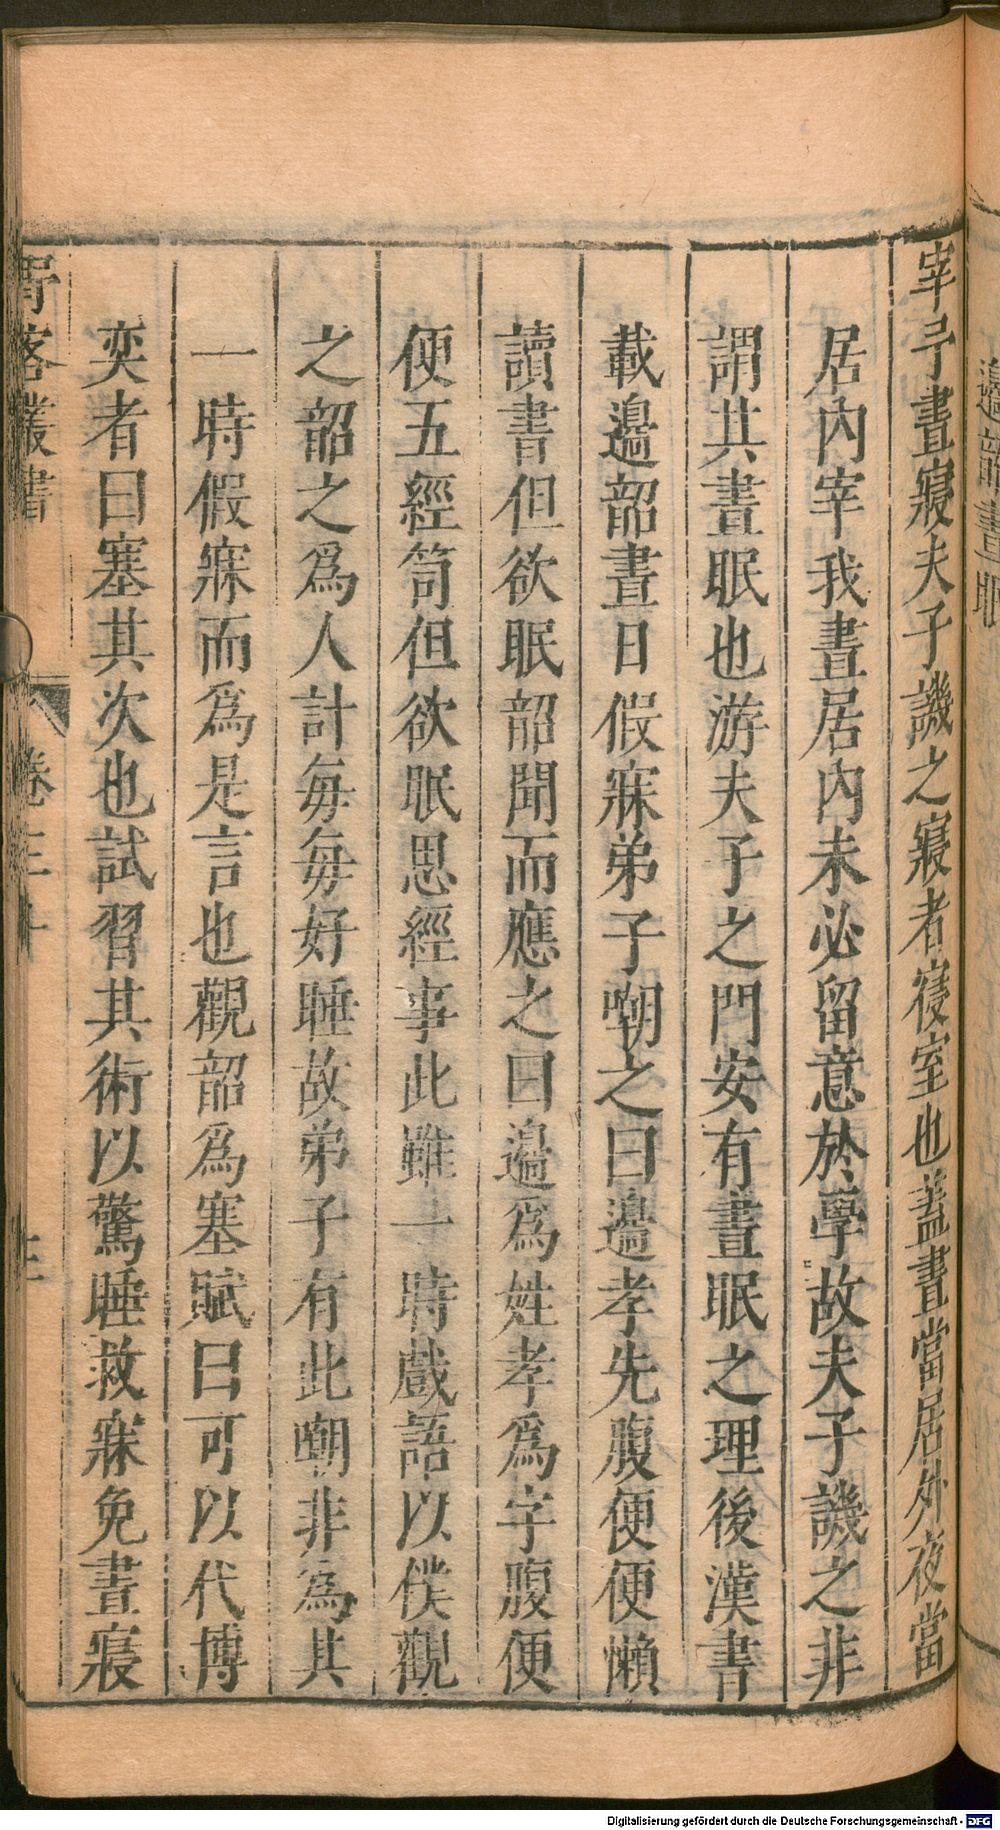 邉韶晝眠
宰予晝寢夫子譏之寢者寑室也蓋晝當居外夜當
居內宰我晝居內未必留意於學故夫子譏之非
謂其晝眠也游夫子之門安有晝眠之理後漢書
載邉韶晝日假寐弟子嘲之曰邉孝先腹便便懶
讀書但欲眠韶聞而應之曰邉爲姓孝爲字腹便
便五經笥但欲眠思經事此雖一時戲語以僕觀
之韶之爲人計每每好睡故弟子有此嘲非爲其
一時假寐而爲是言也觀韶爲塞賦曰可以代博
奕者曰塞其次也試習其術以驚睡救寐免晝寢
客叢書
卷三十
Digitalisierung gefördert durch die Deutsche Forschungsgemeinschaft - DFG